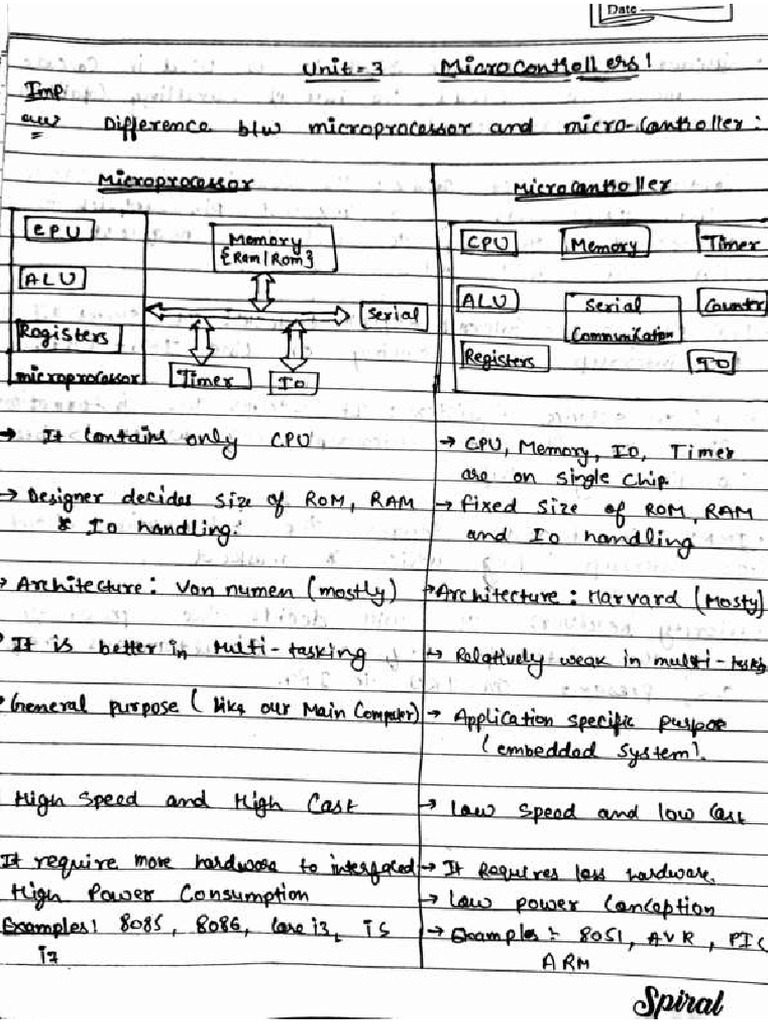 Date
Unit-3 Microcontrollers!
Imp
Difference b/w microprocessor and micro-Controller:
Microprocessor
CPU
ALU
Registers
microprocessor
Memory
{Ram/Rom}
Serial
Timer
Io
→ It Contains only CPU
→ Designer decides size of ROM, RAM
& Io handling.
→ Architecture: Von numen (mostly)
It is better in Multi-tasking
General purpose (like our Main Computer)
High Speed and High Cast
It require more hardware to interfaced
High Power Consumption
Examples: 8085, 8086, Core i3, i5
i7
Microcontroller
CPU Memory Timer
ALU Serial Counter
Communication
Registers IO
→ CPU, Memory, IO, Timer
are on Single Chip
→ fixed size of ROM, RAM
and Io handling
→ Architecture: Harvard (Mosty)
→ Relatively weak in multi-tasking
→ Application specific purpose
(embedded System).
→ Low Speed and low Cast
→ It Requires less hardware.
→ Low power Conception
→ Examples:- 8051, AVR, PIC
ARM
Spiral